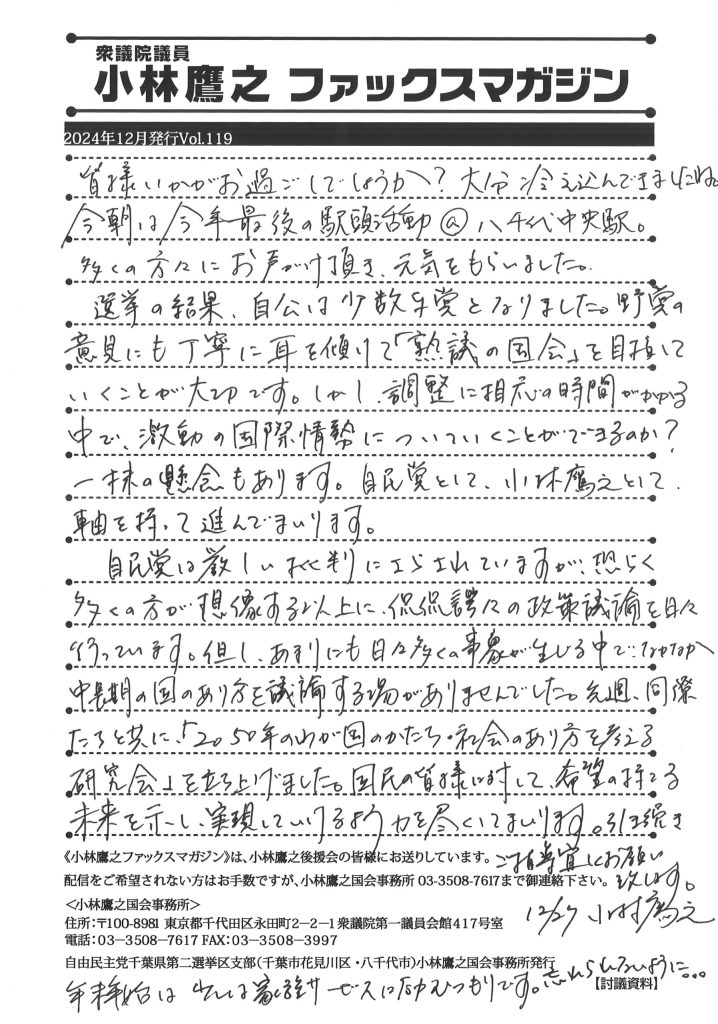 衆議院議員
小林鷹之 ファックスマガジン
2024年12月発行Vol.119
皆様いかがお過ごしでしょうか?大分冷え込んできましたね。
今朝は今年最後の駅頭活動@八千代中央駅。
多くの方々にお声がけ頂き、元気をもらいました。
選挙の結果、自公は少数与党となりました。野党の
意見にも丁寧に耳を傾けて「熟議の国会」を目指して
いくことが大切です。しかし、調整に相応の時間がかかる
中で、激動の国際情勢についていくことができるのか?
一抹の懸念もあります。自民党として、小林鷹之として、
軸を持って進んでまいります。
自民党は厳しい批判にさらされていますが、恐らく
多くの方が想像する以上に、侃侃諤々の政策議論を日々
行っています。但し、あまりにも日々多くの事象が生じる中で、なかなか
中長期の国のあり方を議論する場がありませんでした。先週、同僚
たちと共に、「2050年のわが国のかたち・社会のあり方を考える
研究会」を立ち上げました。国民の皆様に対して、希望の持てる
未来を示し、実現していけるよう力を尽くしてまいります。引き続き
ご指導宜しくお願い
致します。
12/27 小林鷹之
《小林鷹之ファックスマガジン》は、小林鷹之後援会の皆様にお送りしています。
配信をご希望されない方はお手数ですが、小林鷹之国会事務所 03-3508-7617まで御連絡下さい。
<小林鷹之国会事務所>
住所:〒100-8981 東京都千代田区永田町2-2-1衆議院第一議員会館417号室
電話:03-3508-7617 FAX:03-3508-3997
自由民主党千葉県第二選挙区支部(千葉市花見川区・八千代市)小林鷹之国会事務所発行
【討議資料】
年末年始は 家族サービスに励むつもりです。忘れられないように…